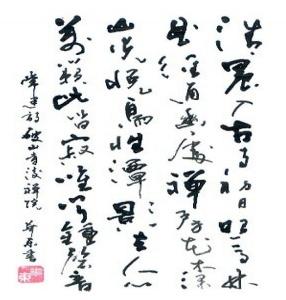 清晨入古寺初日照高林
曲徑通幽處禪房花木深
山光悦鳥性潭影空人心
萬籟此皆寂唯聞鐘磬音
常建詩破山寺後禪院